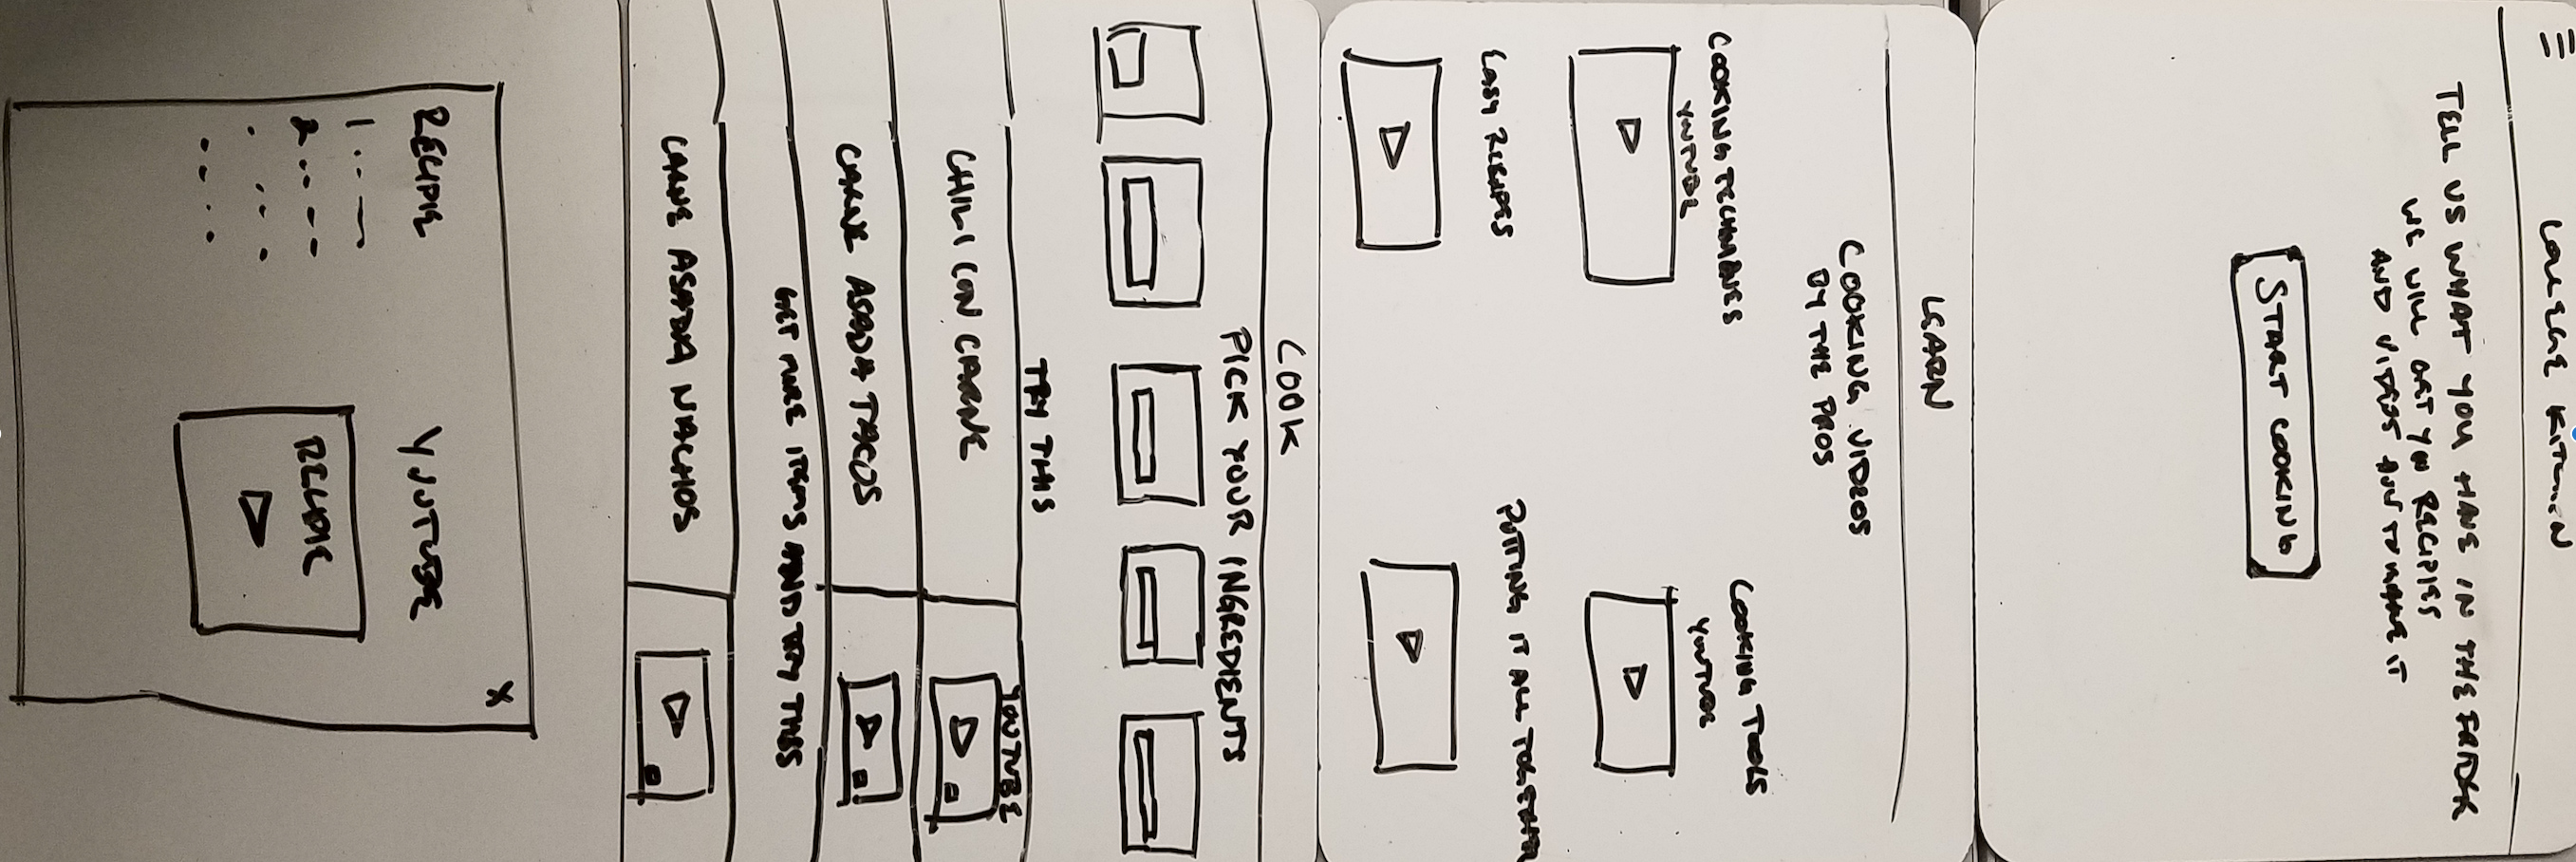 TELL US WHAT YOU HAVE IN THE FRIDGE
WE WILL GET YOU RECIPIES
AND VIDEOS HOW TO MAKE IT
START COOKING
LEARN
COOKING VIDEOS
BY THE PROS
COOKING TECHNIQUES
YOUTUBE
COOKING TOOLS
YOUTUBE
EASY RECIPES
PUTTING IT ALL TOGETHER
COOK
PICK YOUR INGREDIENTS
TRY THIS
YOUTUBE
CHILI CON CARNE
CARNE ASADA TACOS
GET MORE ITEMS AND TRY THIS
CARNE ASADA NACHOS
X
RECIPIE
YOUTUBE
1
2
RECIPIE